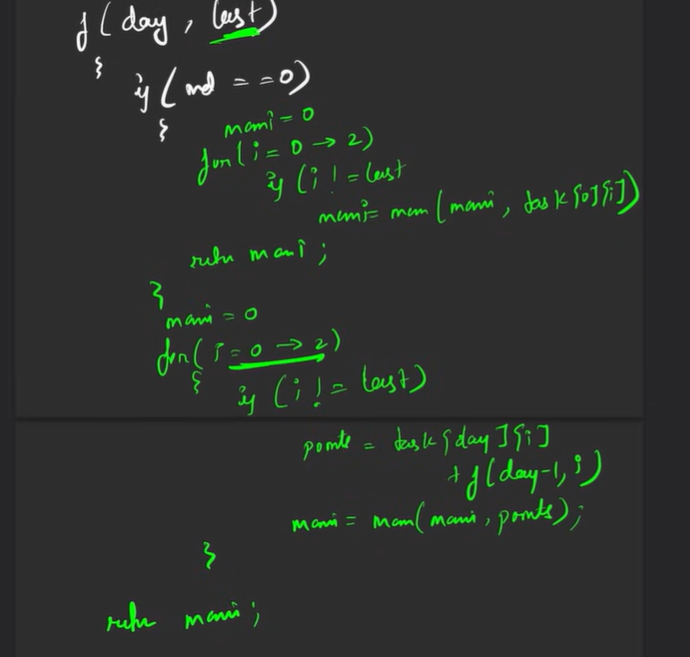 f(day, last)
{
if(ind == 0)
{
maxi = 0
for(i = 0 → 2)
if (i != last
maxi = max(maxi, task[0][i])
return maxi;
}
maxi = 0
for(i = 0 → 2)
{
if (i != last)
points = task[day][i]
+ f(day-1, i)
maxi = max(maxi, points);
}
return maxi;